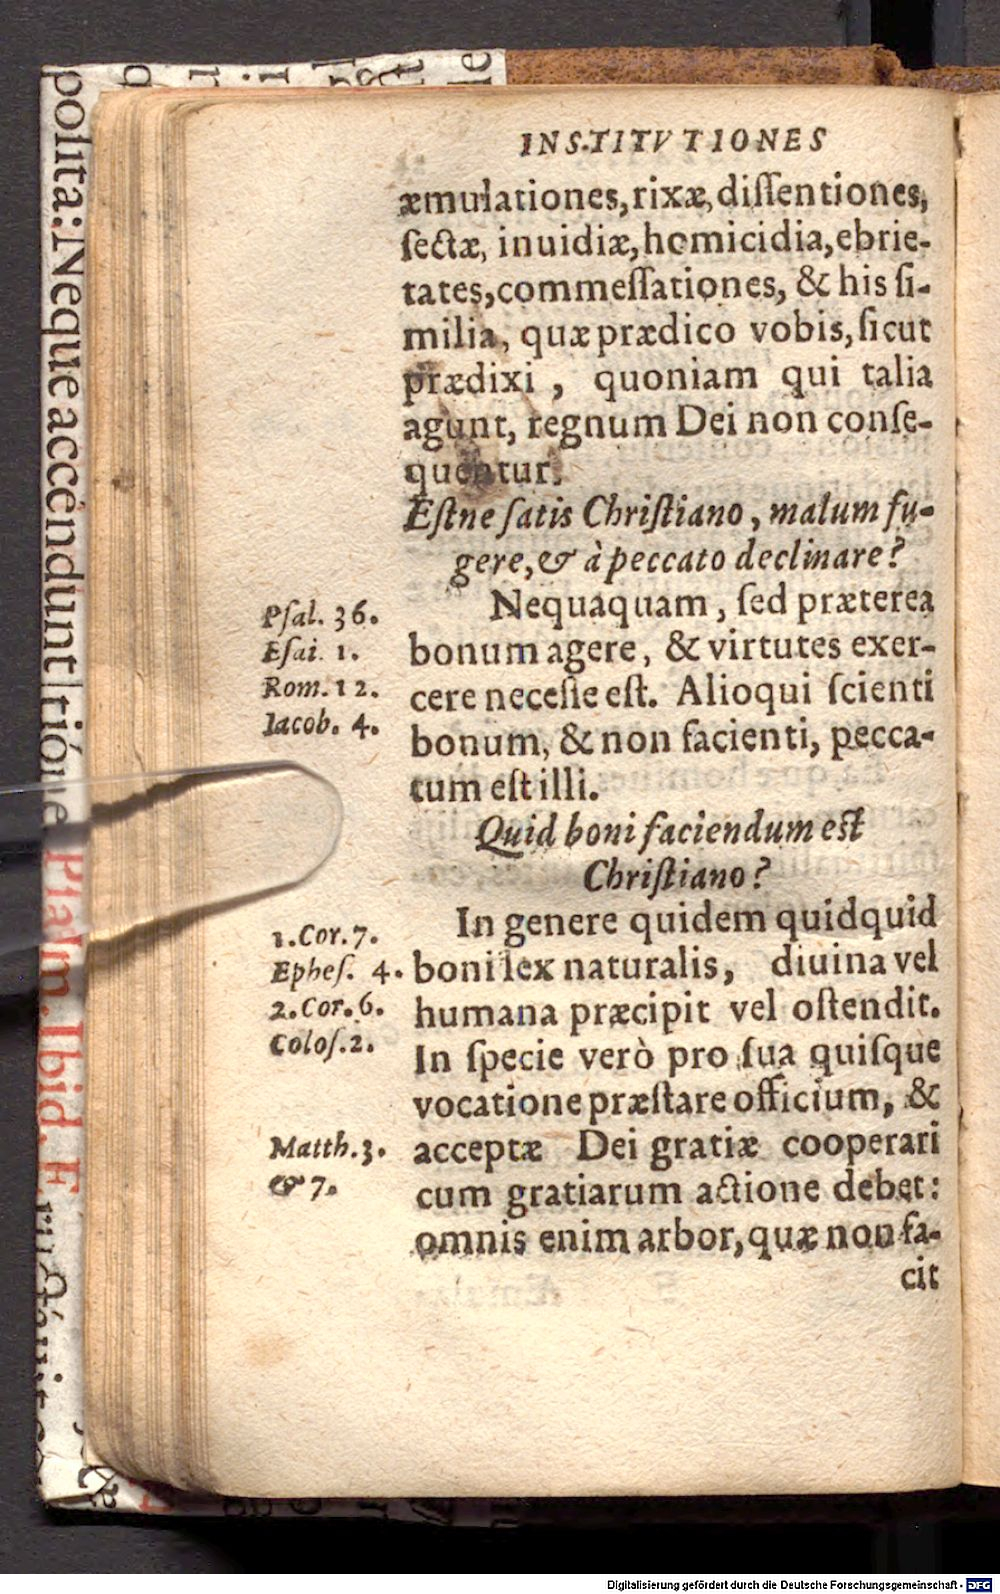 INSTITVTIONES
æmulationes, rixæ, dissentiones,
sectæ, inuidiæ, homicidia, ebrie-
tates, commessationes, & his si-
milia, quæ prædico vobis, sicut
prædixi, quoniam qui talia
agunt, regnum Dei non conse-
quentur.
Estne satis Christiano, malum fu-
gere, & à peccato declinare?
Nequaquam, sed præterea
Psal. 36.
bonum agere, & virtutes exer-
Esai. 1.
cere necesse est. Alioqui scienti
Rom. 12.
bonum, & non facienti, pecca-
Iacob. 4.
tum est illi.
Quid boni faciendum est
Christiano?
In genere quidem quidquid
1. Cor. 7.
boni lex naturalis, diuina vel
Ephes. 4.
humana præcipit vel ostendit.
2. Cor. 6.
In specie verò pro sua quisque
Colos. 2.
vocatione præstare officium, &
acceptæ Dei gratiæ cooperari
Matth. 3.
cum gratiarum actione debet:
& 7.
omnis enim arbor, quæ non fa-
cit
polita: Neque accéndunt
Psalm. Ibid. E
Digitalisierung gefördert durch die Deutsche Forschungsgemeinschaft - DFG